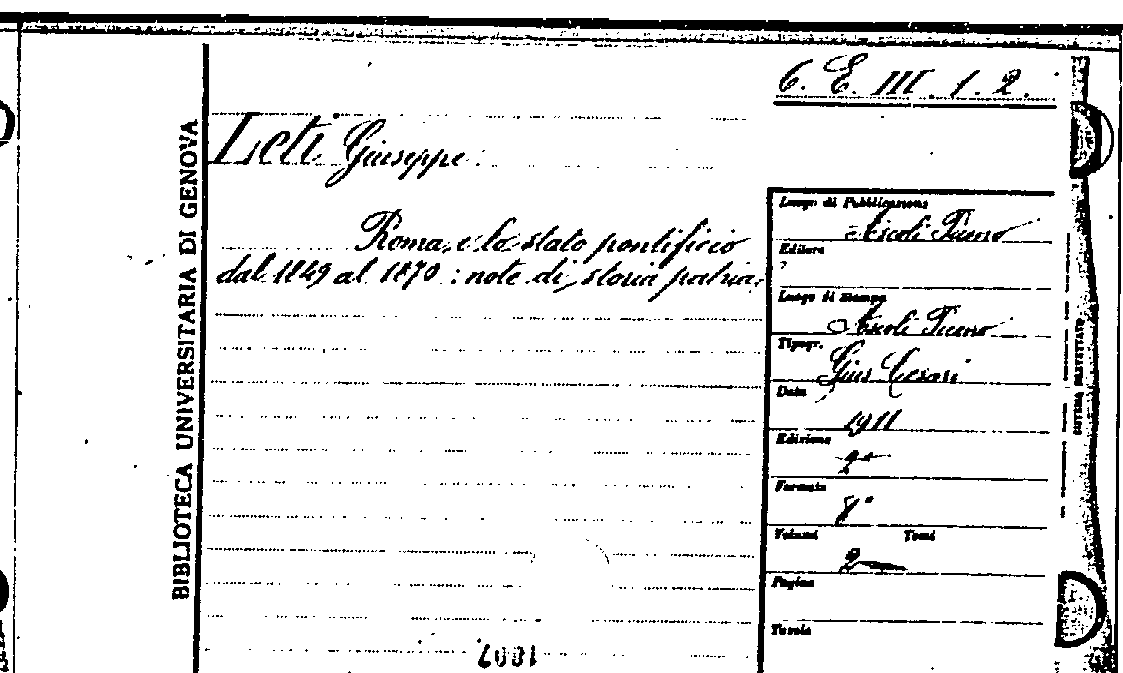 6. E. III. 1. 2.
Leti Giuseppe.
Roma e lo stato pontificio
dal 1849 al 1870 : note di storia patria.
BIBLIOTECA UNIVERSITARIA DI GENOVA
Luogo di Pubblicazione
Ascoli Piceno
Editore
?
Luogo di Stampa
Ascoli Piceno
Tipogr.
Gius Cesari
Data
1911
Edizione
2ª
Formato
8°
Volumi Tomi
2
Pagine
Tavole